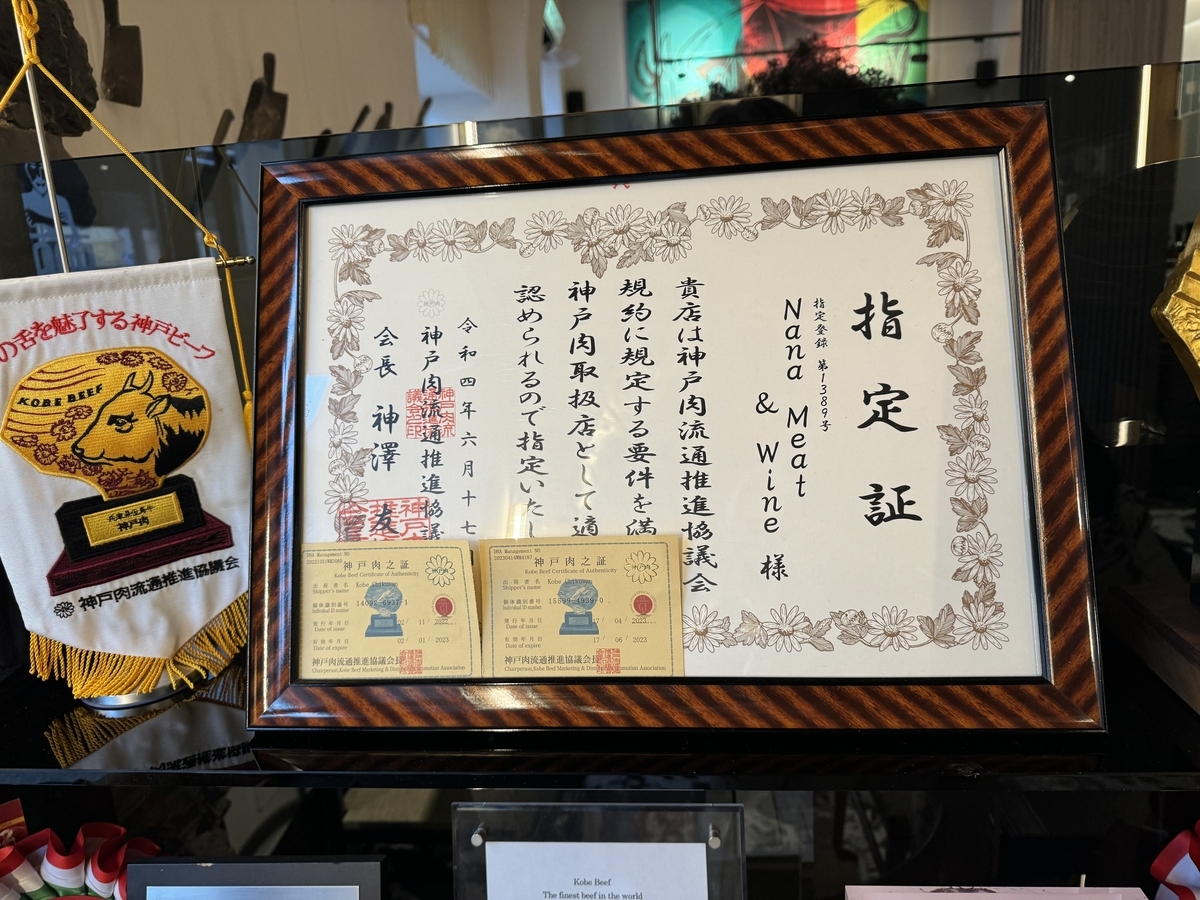 の舌を魅了する神戸ビーフ
KOBE BEEF
兵庫県産黒牛
神戸肉
神戸肉流通推進協議会
指定証
指定登録 第1389号
Nana Meat
& Wine 様
貴店は神戸肉流通推進協議会
規約に規定する要件を満
神戸肉取扱店として適
認められるので指定いたし
令和四年六月十七
神戸肉流通推進協議
会長 神澤 友
神戸肉之証
Kobe Beef Certificate of Authenticity
出荷者名
Shipper's name
個体識別番号
Individual ID number
発行年月日
Date of issue
有効年月日
02/ 01 /2023
Date of expire
神戸肉流通推進協議会長
神戸肉之証
Kobe Beef Certificate of Authenticity
出荷者名
Shipper's name
個体識別番号
Individual ID number
発行年月日
/ 04 /2023
Date of issue
有効年月日
17/ 06 /2023
Date of expire
神戸肉流通推進協議会長
Kobe Beef
The finest beef in the world